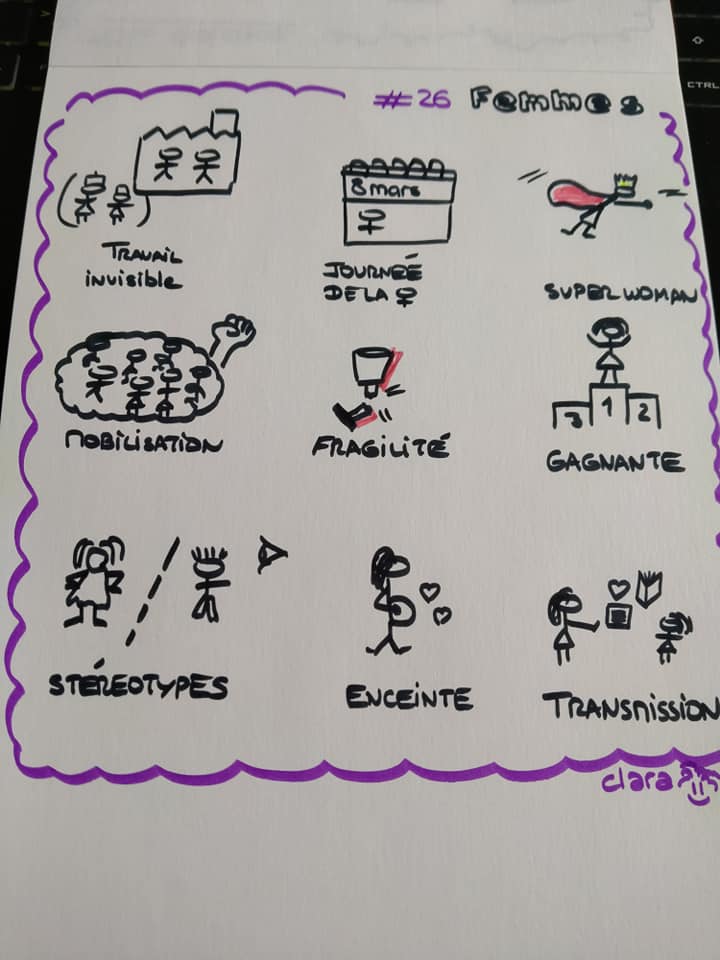 #26 Femmes
TRAVAIL
invisible
8 mars
JOURNÉE
DE LA ♀
SUPER WOMAN
MOBILISATION
FRAGILITÉ
3 1 2
GAGNANTE
STÉREOTYPES
ENCEINTE
TRANSMISSION
clara
CTRL